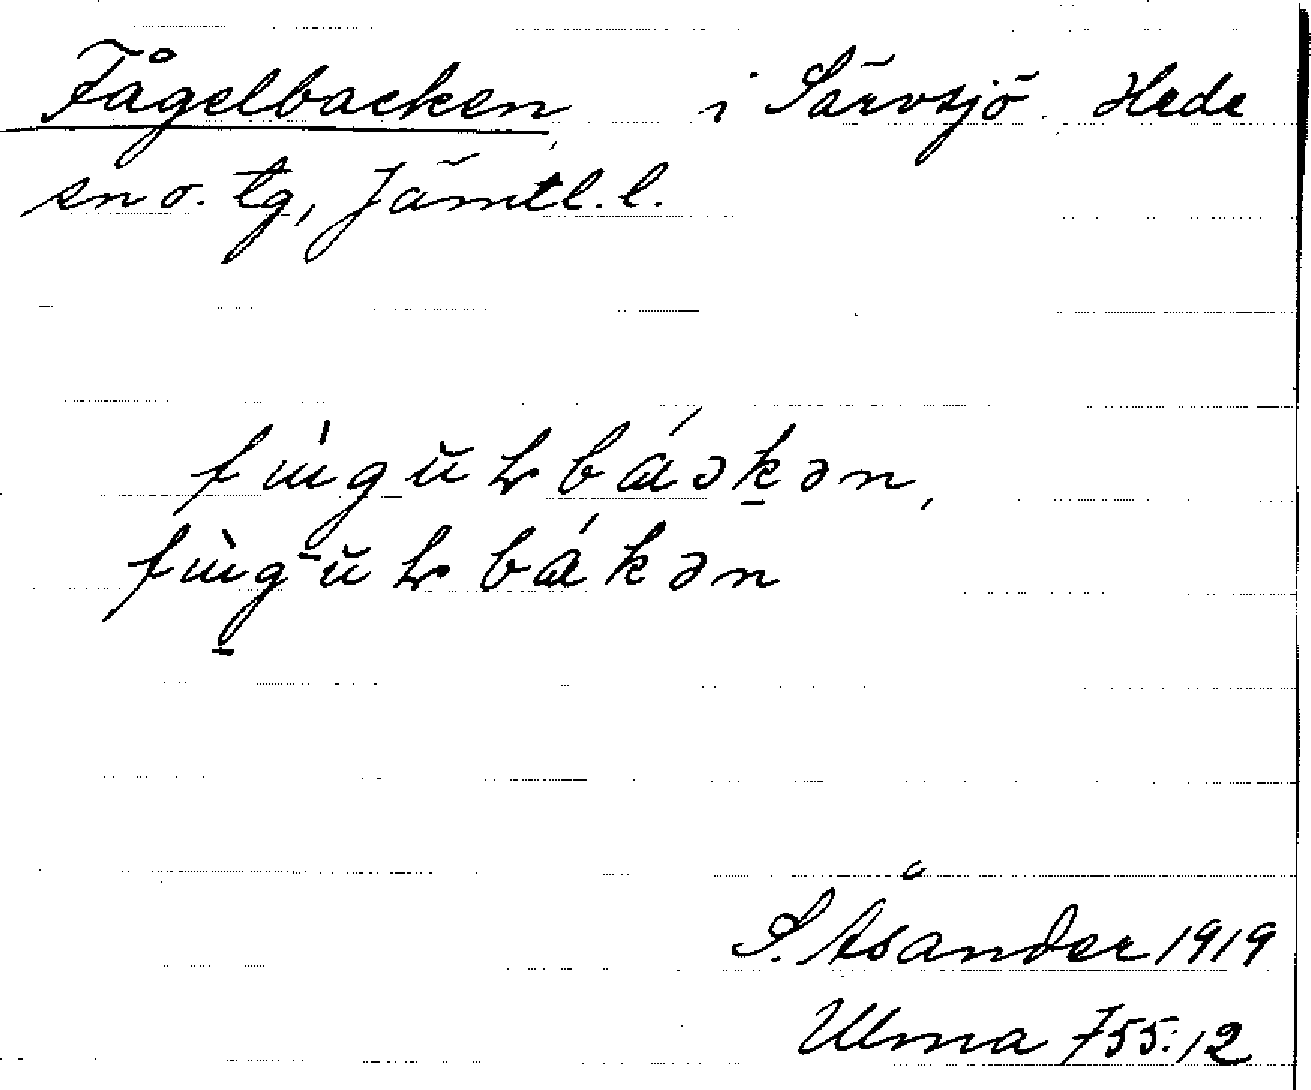 Fågelbacken, i Särvsjö. Hede
sn o. tg, Jämtl. l.
fɯ́gŭɫbáək̲ən,
fɯ̀g̲ŭɫbákən
S. Åsander 1919
Ulma 755:12